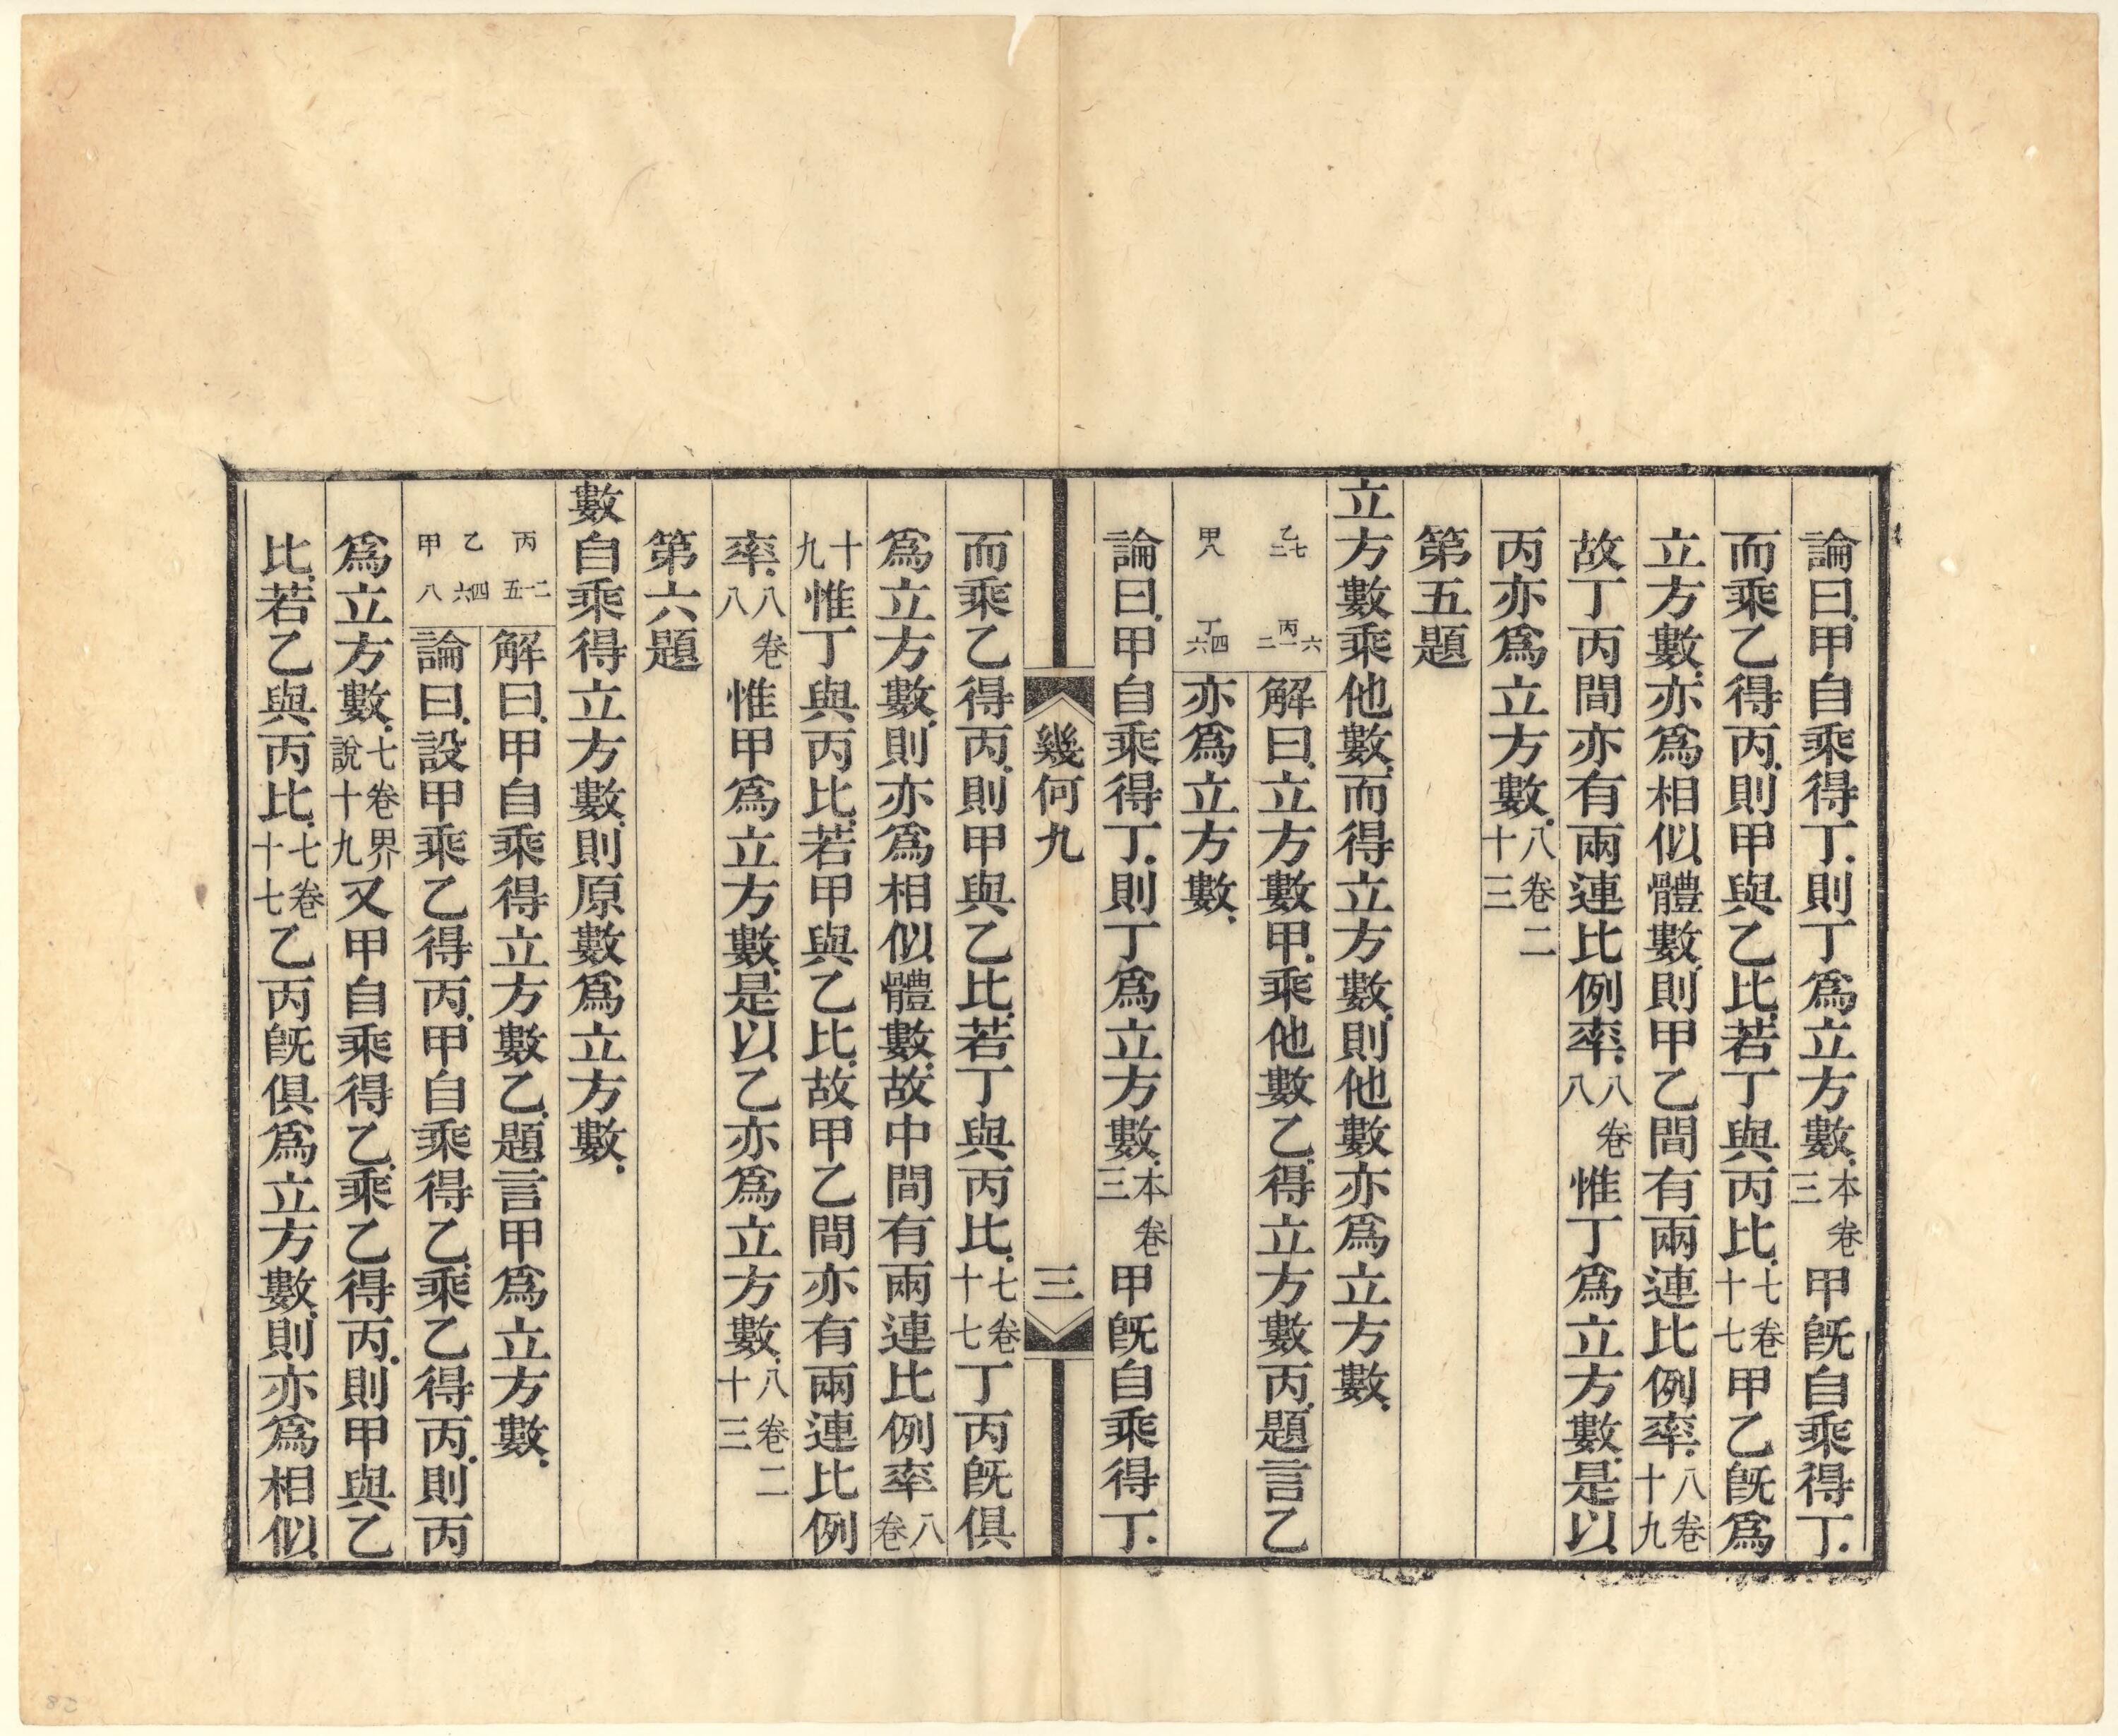 論曰甲自乘得丁則丁爲立方數本卷三甲旣自乘得丁
而乘乙得丙則甲與乙比若丁與丙比七卷十七甲乙旣爲
立方數亦爲相似體數則甲乙間有兩連比例率八卷十九
故丁丙間亦有兩連比例率八卷八惟丁爲立方數是以
丙亦爲立方數八卷二十三
第五題
立方數乘他數而得立方數則他數亦爲立方數
乙二七 丙二一六 解曰立方數甲乘他數乙得立方數丙題言乙
甲八 丁六四 亦爲立方數
論曰甲自乘得丁則丁爲立方數本卷三甲旣自乘得丁
幾何九 三
而乘乙得丙則甲與乙比若丁與丙比七卷十七丁丙旣俱
爲立方數則亦爲相似體數故中間有兩連比例率八卷
十九惟丁與丙比若甲與乙比故甲乙間亦有兩連比例
率八卷八惟甲爲立方數是以乙亦爲立方數八卷二十三
第六題
數自乘得立方數則原數爲立方數
丙五一二 解曰甲自乘得立方數乙題言甲爲立方數
乙六四 甲八 論曰設甲乘乙得丙甲自乘得乙乘乙得丙則丙
爲立方數七卷界說十九又甲自乘得乙乘乙得丙則甲與乙
比若乙與丙比七卷十七乙丙旣俱爲立方數則亦爲相似